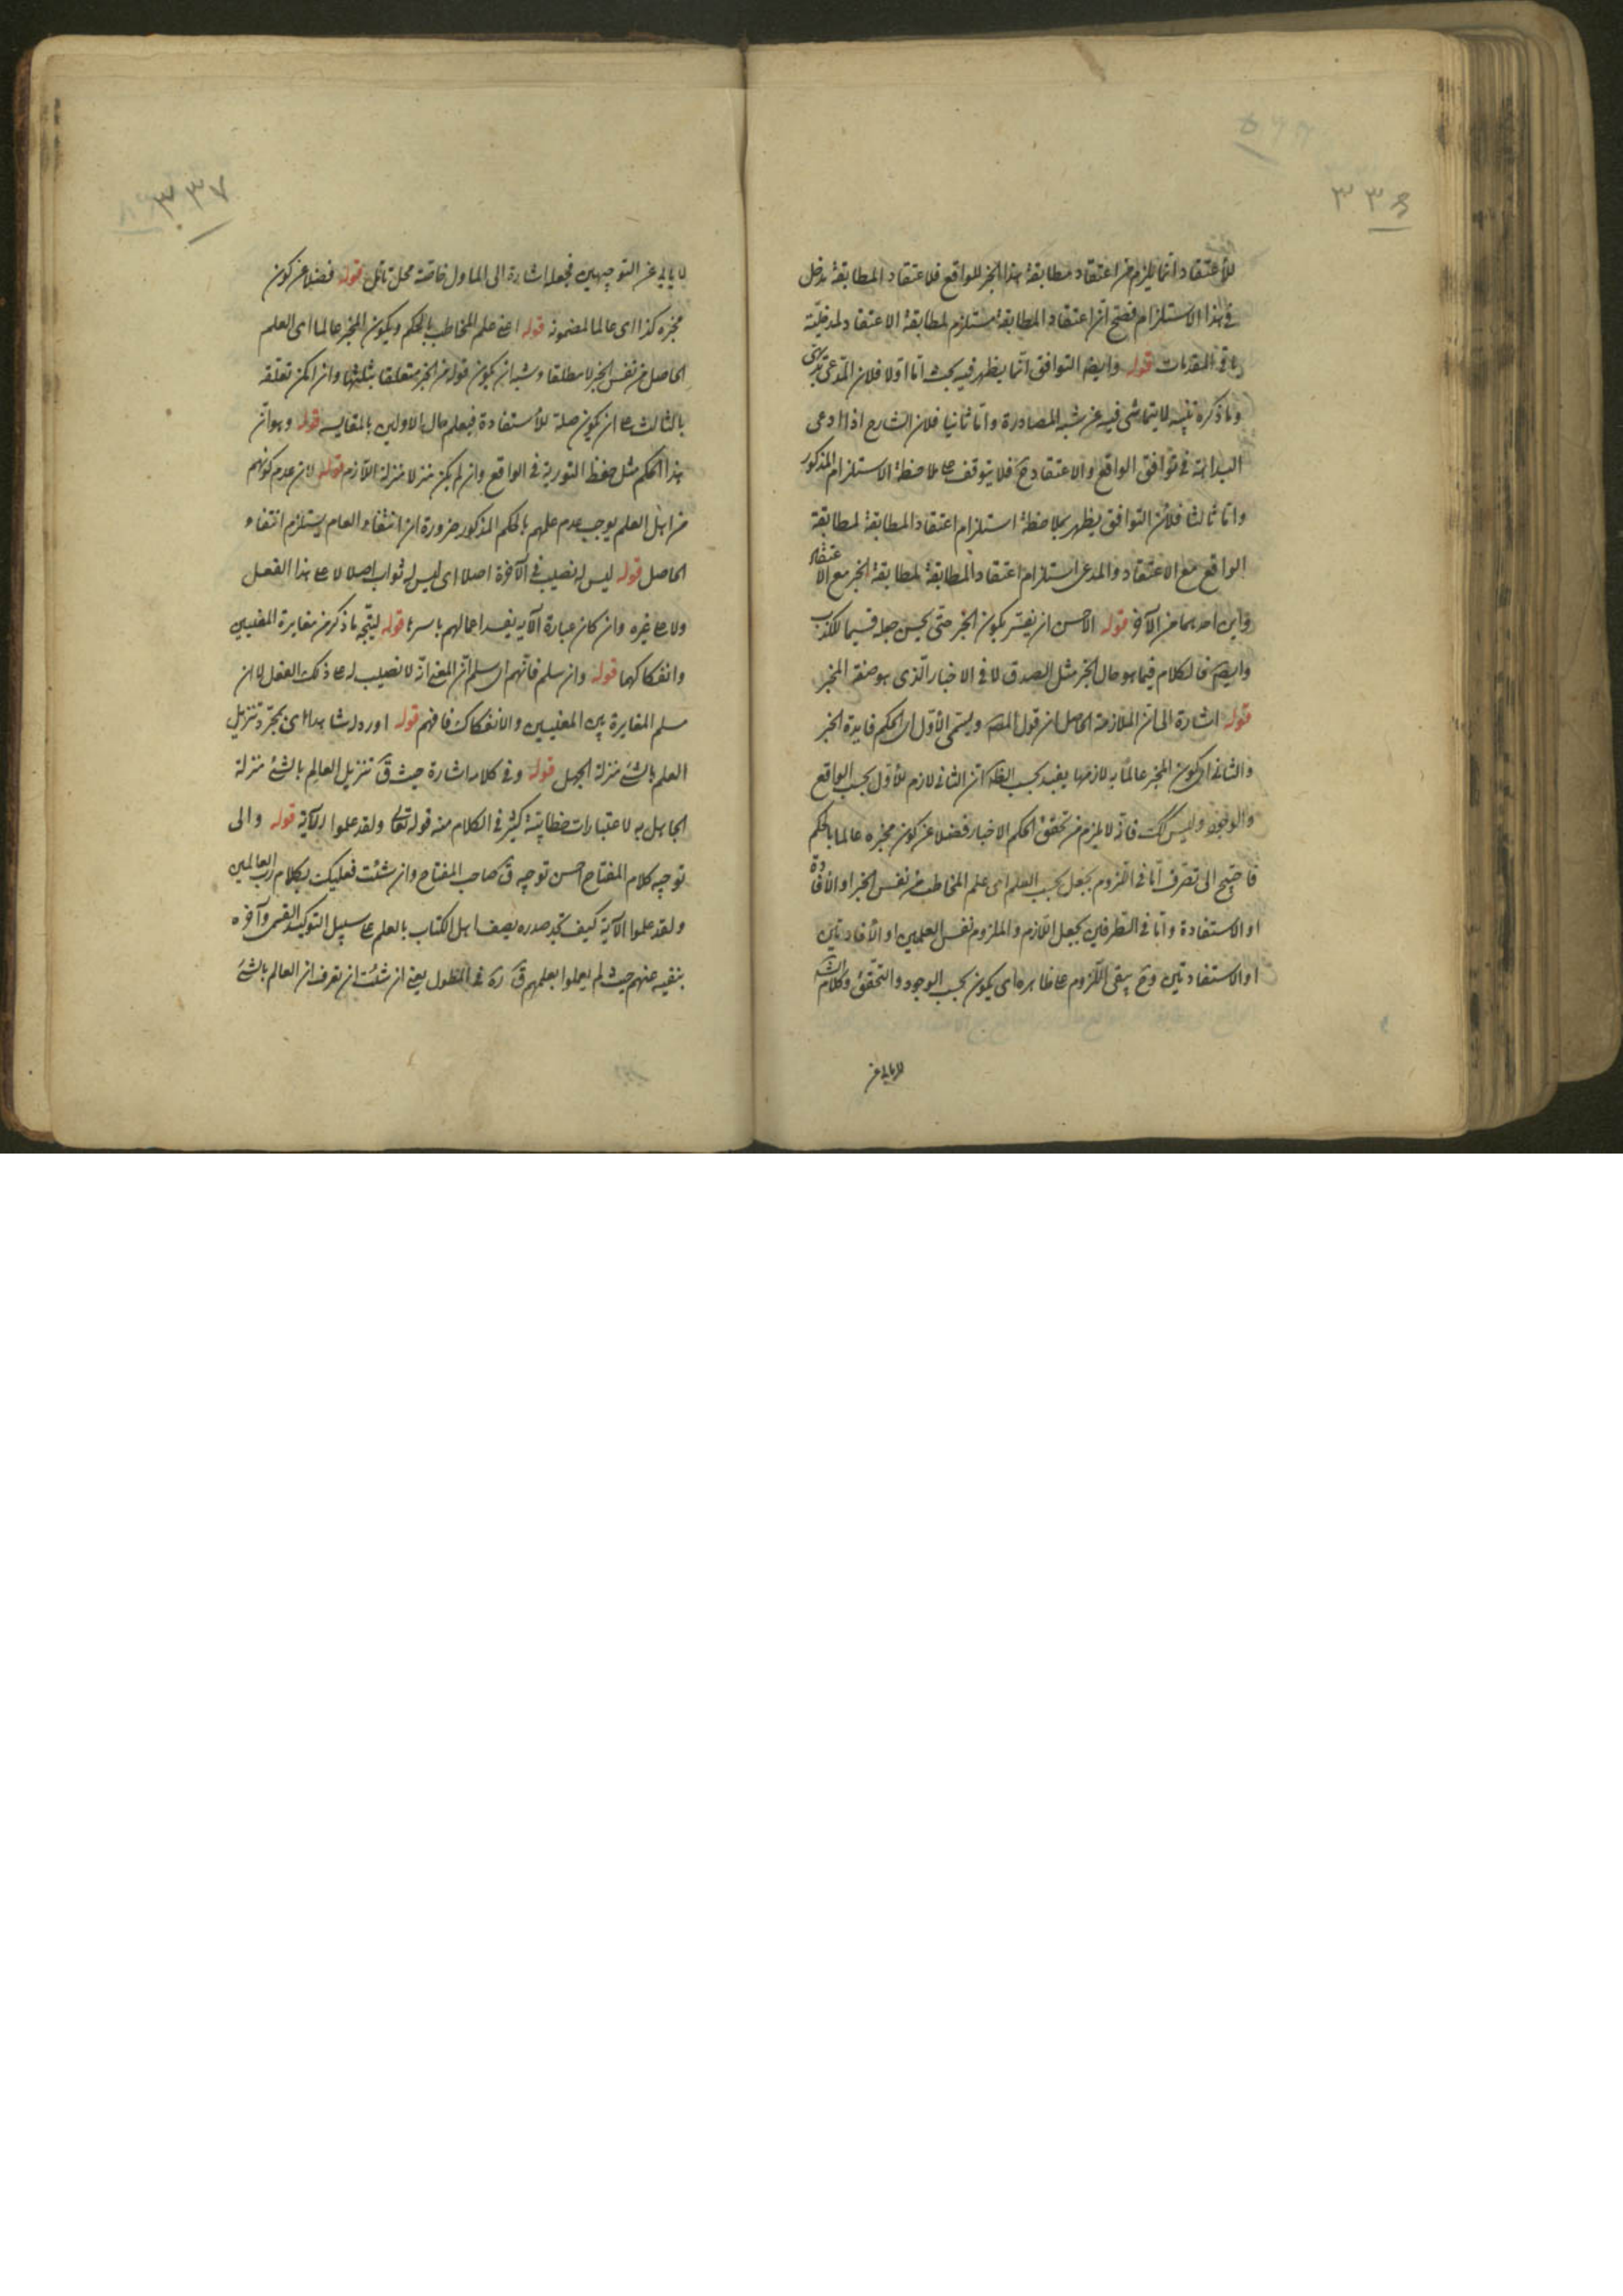 ٣٣٦
للاعتقاد انما يلزم من اعتقاد مطابقة هذا الخبر للواقع فلاعتقاد المطابقة مدخل
فى هذا الاستلزام فصح ان اعتقاد المطابقة مستلزم لمطابقة الاعتقاد لمدخلية
باقى المقدمات قوله وايضا التوافق انما يظهر فيه بحث اما اولا فلان المدعى بديهى
وما ذكره تنبيه لا يتماشى فيه عن شبه المصادرة واما ثانيا فلان الشارح اذا ادعى
البداهة فى توافق الواقع والاعتقاد ح فلا يتوقف ع ملاحظة الاستلزام المذكور
واما ثالثا فلان التوافق يظهر بملاحظة استلزام اعتقاد المطابقة لمطابقة
الواقع مع الاعتقاد والمدعى استلزام اعتقاد المطابقة لمطابقة الخبر مع الاعتقاد
واين احدهما من الآخر قوله الاحسن ان يفسر بكون الخبر حتى يحسن جعله قسيما للكذب
وايضا فالكلام فيما هو حال الخبر مثل الصدق لا فى الاخبار الذى هو صفة المخبر
قوله اشارة الى ان الملازمة الحاصل ان قول المصه ويسمى الاول اى الحكم فايدة الخبر
والثانى اى كون المخبر عالما به لازمها يفيد بحسب الظه ان الثانى لازم للاول بحسب الواقع
والوجود وليس كك فانه لا يلزم من تحقق الحكم الاخبار فضلا عن كون مخبره عالما بالحكم
فاحتيج الى تصرف اما فى اللزوم بجعل بحسب العلم اى علم المخاطب من نفس الخبر او الافادة
او الاستفادة واما فى الطرفين بجعل اللازم والملزوم نفس العلمين او الافادتين
او الاستفادتين وح يبقى اللزوم ع ظاهره اى يكون بحسب الوجود والتحقق وكلام الشه
لا يابى عن
٣٣٧
لا يابى عن التوجيهين فجعله اشارة الى الماول خاصة محل تامل قوله فضلا عن كون
مخبره كذا اى عالما لمضمونه قوله اعنى علم المخاطب بالحكم وبكون المخبر عالما اى العلم
الحاصل من نفس الخبر لا مطلقا ويشبه ان يكون قوله من الخبر متعلقا بثلثتها وان امكن تعلقه
بالثالث ع ان يكون صلة للاستفادة فيعلم حال الاولين بالمقايسه قوله وهو ان
هذا الحكم مثل حفظ التورية فى الواقع وان لم يكن منزلا منزلة اللازم قوله لان عدم كونهم
من اهل العلم يوجب عدم علمهم بالحكم المذكور ضرورة ان انتفاء العام يستلزم انتفاء
الحاصل قوله ليس له نصيب فى الآخرة اصلا اى ليس له ثواب اصلا لا ع هذا الفعل
ولا ع غيره وان كان عبارة الآيه يفيد اعمالهم باسرها قوله ليتجه ما ذكر من مغايرة المعنيين
وانفكاكهما قوله وان سلم فانهم اى سلم ان المعنى انه لا نصيب له ع ذلك الفعل لا ان
سلم المغايرة بين المعنيين والانفكاك فافهم قوله اورده شاهدا اى بمجرد تنزيل
العلم بالشئ منزلة الجهل قوله وفى كلامه اشارة حيث ق تنزيل العالم بالشئ منزلة
الجاهل به لاعتبارات خطابية كثير فى الكلام منه قوله تعالى ولقد علموا الآية قوله والى
توجيه كلام المفتاح احسن توجيه ق صاحب المفتاح وان شئت فعليك بكلام رب العالمين
ولقد علموا الآية كيف تجد صدره يصف اهل الكتاب بالعلم ع سبيل التوكيد القسمى وآخره
ينفيه عنهم حيث لم يعملوا بعلمهم ق ره فى المطول يعنى ان شئت ان تعرف ان العالم بالشئ